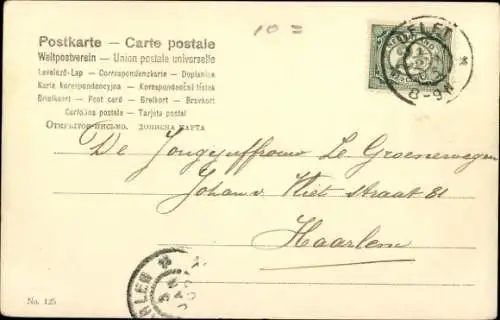 10 =
Postkarte — Carte postale
Weltpostverein — Union postale universelle
Levelező-Lap — Correspondenzkarte — Dopisnice
Karta korespondencyjna — Korespondenční lístek
Briefkaart — Post card — Brefkort — Brevkort
Cartolina postale — Tarjeta postal
Открытое письмо. дописна карта
De Jongejuffrouw Le Groenewegen
Johan v. Vliet straat 81
Haarlem
No. 125